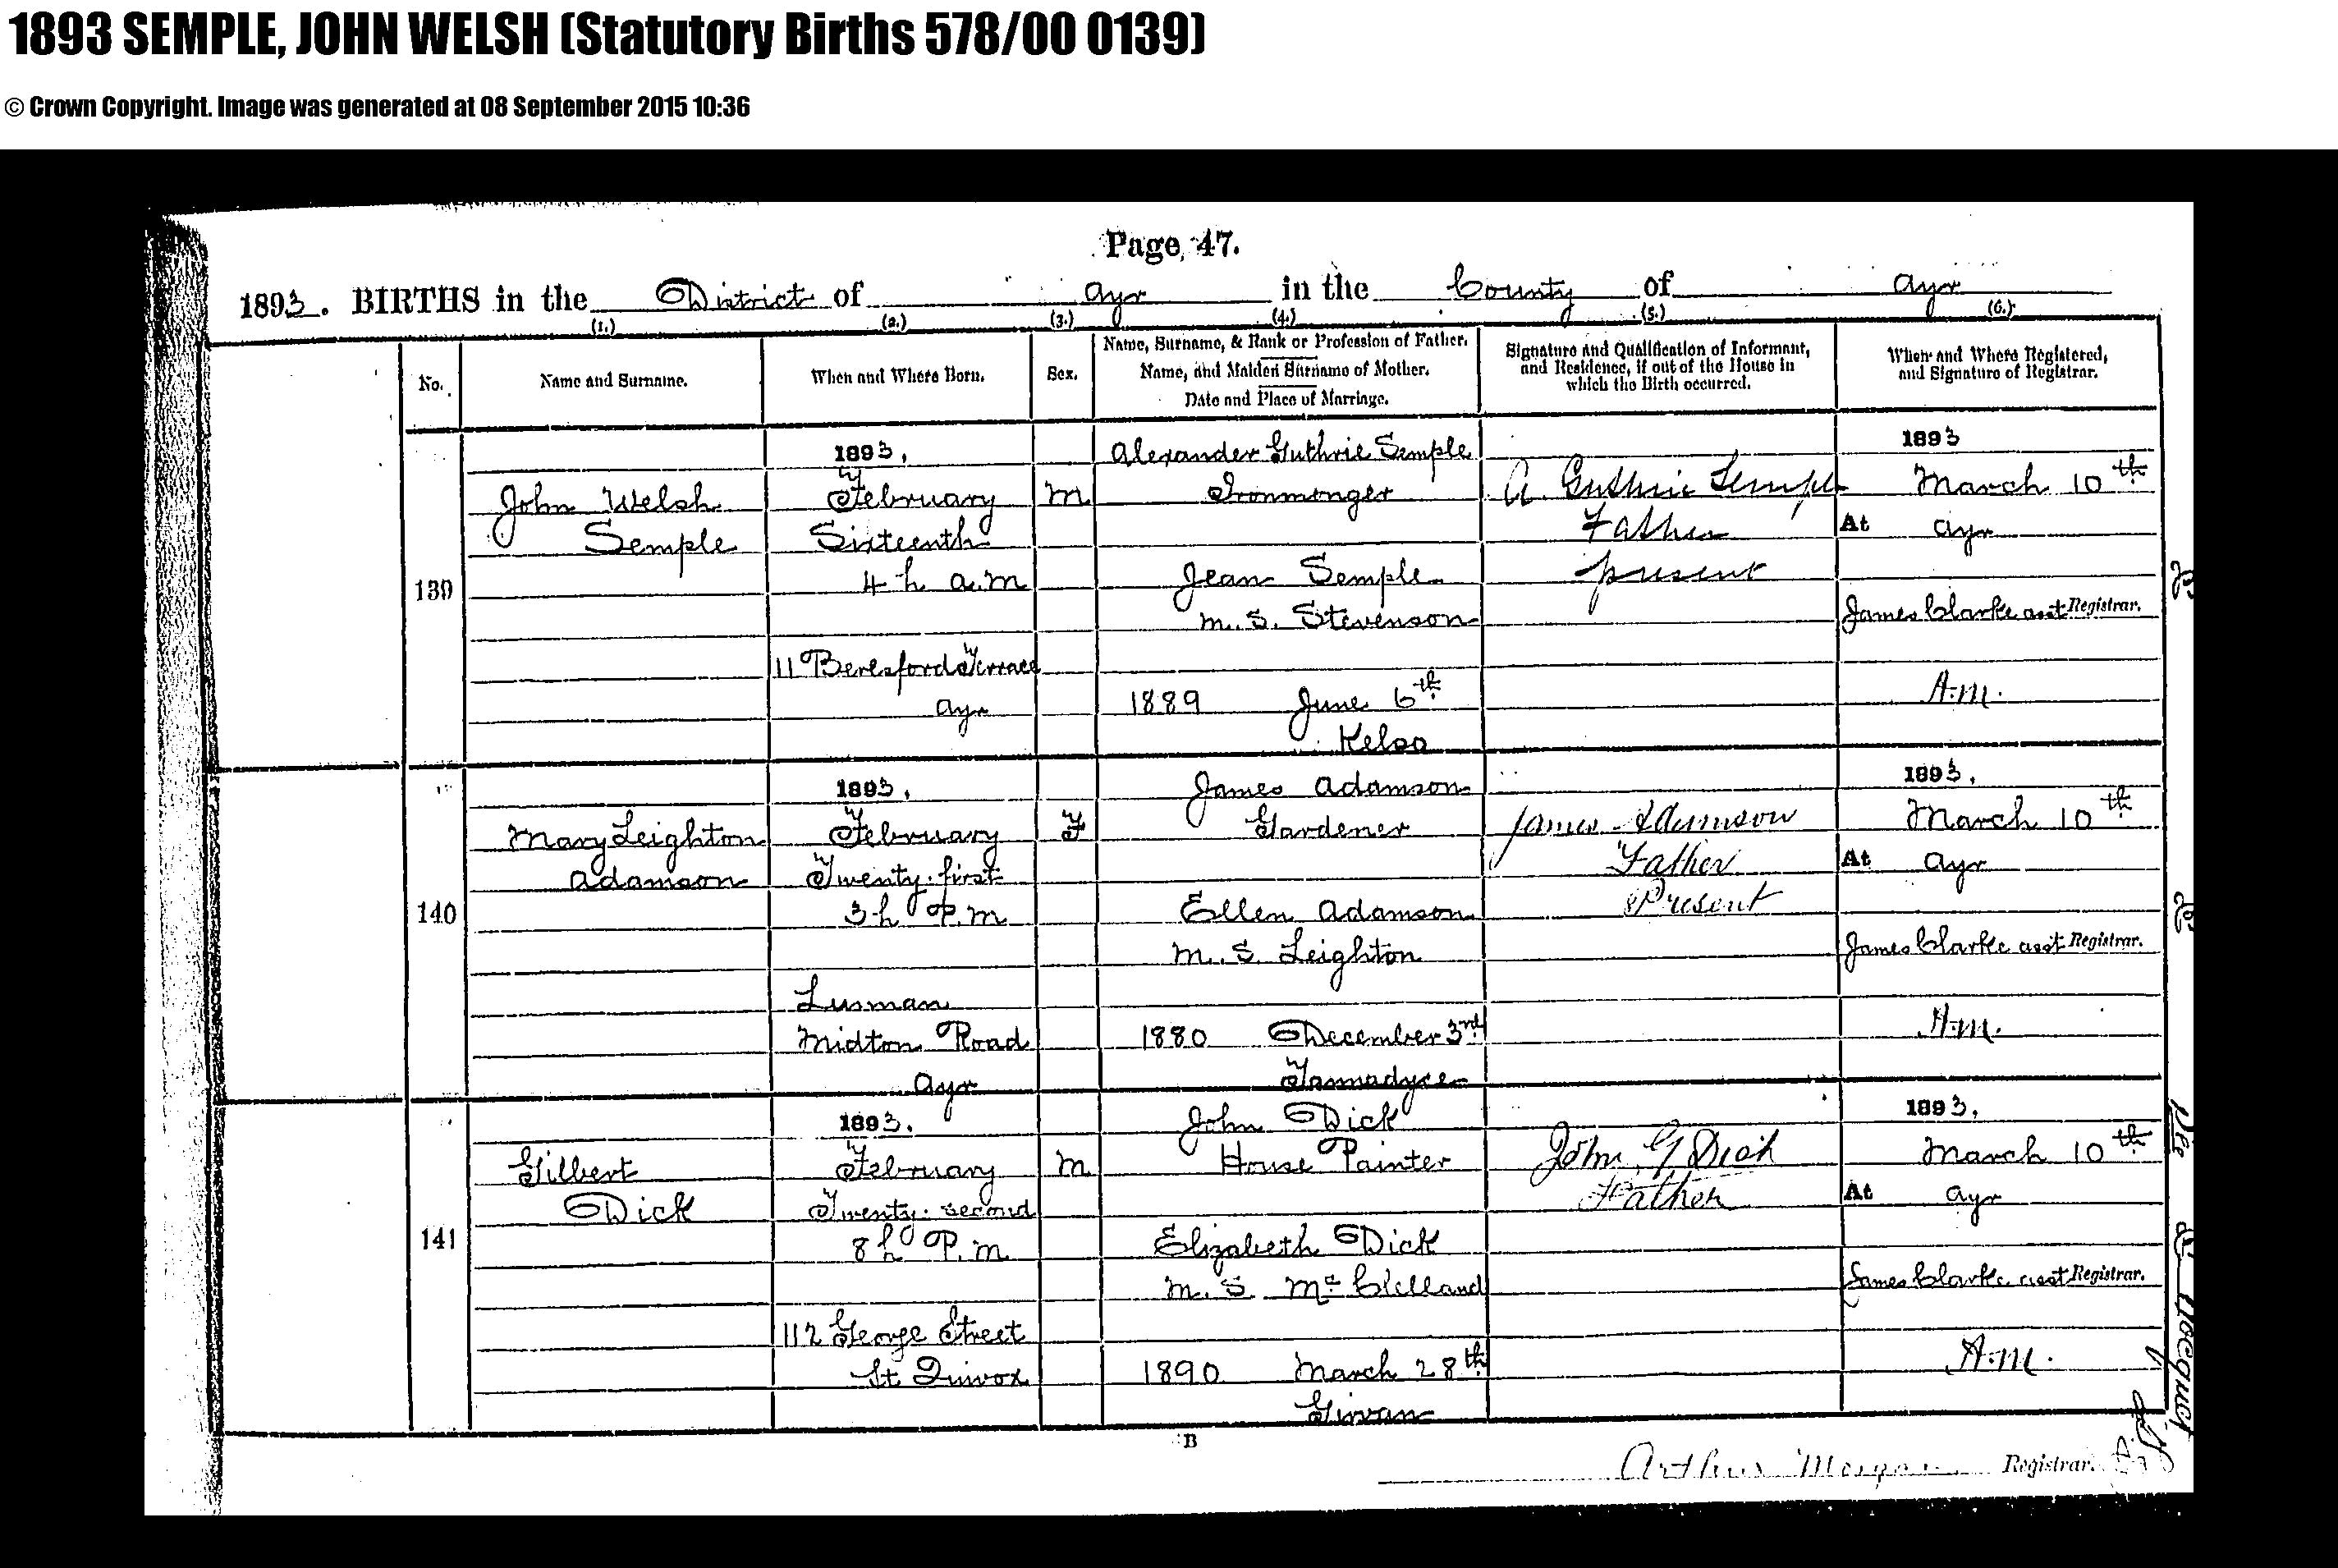 1893 SEMPLE, JOHN WELSH (Statutory Births 578/00 0139)
© Crown Copyright. Image was generated at 08 September 2015 10:36
Page 47.
1893. BIRTHS in the District of Ayr in the County of Ayr
(1.) (2.) (3.) (4.) (5.) (6.)
No.
Name and Surname.
When and Where Born.
Sex.
Name, Surname, & Rank or Profession of Father.
Name, and Maiden Surname of Mother.
Date and Place of Marriage.
Signature and Qualification of Informant,
and Residence, if out of the House in
which the Birth occurred.
When and Where Registered,
and Signature of Registrar.
139
John Welsh
Semple
1893,
February
Sixteenth
4 h a.m
11 Beresford Terrace
Ayr
M
Alexander Guthrie Semple
Ironmonger
Jean Semple
m.s. Stevenson
1889 June 6th
Kelso
A. Guthrie Semple
Father
present
1893
March 10th
At Ayr
James Clarke asst Registrar.
A.M.
140
Mary Leighton
Adamson
1893,
February
Twenty-first
3 h P.m
Midton Road
Ayr
F
James Adamson
Gardener
Ellen Adamson
m.s. Leighton
1880 December 3rd
Tannadyce
James Adamson
Father
Present
1893,
March 10th
At Ayr
James Clarke asst Registrar.
A.M.
141
Gilbert
Dick
1893.
February
Twenty-second
8 h P.m
112 George Street
St Quivox
M
John Dick
House Painter
Elizabeth Dick
m.s. McClelland
1890 March 28th
Girvan
John G Dick
Father
1893,
March 10th
At Ayr
James Clarke asst Registrar.
A.M.
B
Arthur Morgan Registrar.